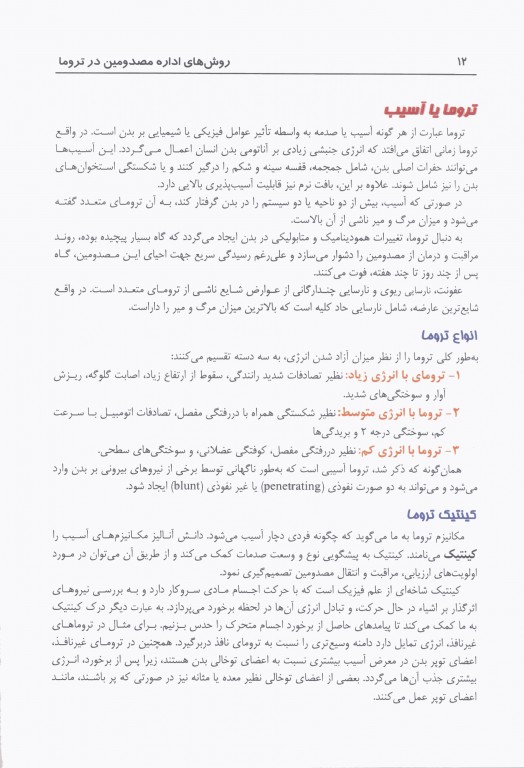 ۱۲
روش‌های اداره مصدومین در تروما
تروما یا آسیب
تروما عبارت از هر گونه آسیب یا صدمه به واسطه تأثیر عوامل فیزیکی یا شیمیایی بر بدن است. در واقع
تروما زمانی اتفاق می‌افتد که انرژی جنبشی زیادی بر آناتومی بدن انسان اعمال می‌گردد. این آسیب‌ها
می‌توانند حفرات اصلی بدن، شامل جمجمه، قفسه سینه و شکم را درگیر کنند و یا شکستگی استخوان‌های
بدن را نیز شامل شوند. علاوه بر این، بافت نرم نیز قابلیت آسیب‌پذیری بالایی دارد.
در صورتی که آسیب، بیش از دو ناحیه یا دو سیستم را در بدن گرفتار کند، به آن ترومای متعدد گفته
می‌شود و میزان مرگ و میر ناشی از آن بالاست.
به دنبال تروما، تغییرات همودینامیک و متابولیکی در بدن ایجاد می‌گردد که گاه بسیار پیچیده بوده، روند
مراقبت و درمان از مصدومین را دشوار می‌سازد و علی‌رغم رسیدگی سریع جهت احیای این مصدومین، گاه
پس از چند روز تا چند هفته، فوت می‌کنند.
عفونت، نارسایی ریوی و نارسایی چندارگانی از عوارض شایع ناشی از ترومای متعدد است. در واقع
شایع‌ترین عارضه، شامل نارسایی حاد کلیه است که بالاترین میزان مرگ و میر را داراست.
انواع تروما
به‌طور کلی تروما را از نظر میزان آزاد شدن انرژی، به سه دسته تقسیم می‌کنند:
۱- ترومای با انرژی زیاد: نظیر تصادفات شدید رانندگی، سقوط از ارتفاع زیاد، اصابت گلوگه، ریزش
آوار و سوختگی‌های شدید.
۲- تروما با انرژی متوسط: نظیر شکستگی همراه با دررفتگی مفصل، تصادفات اتومبیل با سرعت
کم، سوختگی درجه ۲ و بریدگی‌ها
۳- تروما با انرژی کم: نظیر دررفتگی مفصل، کوفتگی عضلانی، و سوختگی‌های سطحی.
همان‌گونه که ذکر شد، تروما آسیبی است که به‌طور ناگهانی توسط برخی از نیروهای بیرونی بر بدن وارد
می‌شود و می‌تواند به دو صورت نفوذی (penetrating) یا غیر نفوذی (blunt) ایجاد شود.
کینتیک تروما
مکانیزم تروما به ما می‌گوید که چگونه فردی دچار آسیب می‌شود. دانش آنالیز مکانیزم‌های آسیب را
کینتیک می‌نامند. کینتیک به پیشگویی نوع و وسعت صدمات کمک می‌کند و از طریق آن می‌توان در مورد
اولویت‌های ارزیابی، مراقبت و انتقال مصدومین تصمیم‌گیری نمود.
کینتیک شاخه‌ای از علم فیزیک است که با حرکت اجسام مادی سروکار دارد و به بررسی نیروهای
اثرگذار بر اشیاء در حال حرکت، و تبادل انرژی آن‌ها در لحظه برخورد می‌پردازد. به عبارت دیگر درک کینتیک
به ما کمک می‌کند تا پیامدهای حاصل از برخورد اجسام متحرک را حدس بزنیم. برای مثال در تروماهای
غیرنافذ، انرژی تمایل دارد دامنه وسیع‌تری را نسبت به ترومای نافذ دربرگیرد. همچنین در ترومای غیرنافذ،
اعضای توپر بدن در معرض آسیب بیشتری نسبت به اعضای توخالی بدن هستند، زیرا پس از برخورد، انرژی
بیشتری جذب آن‌ها می‌گردد. بعضی از اعضای توخالی نظیر معده یا مثانه نیز در صورتی که پر باشند، مانند
اعضای توپر عمل می‌کنند.